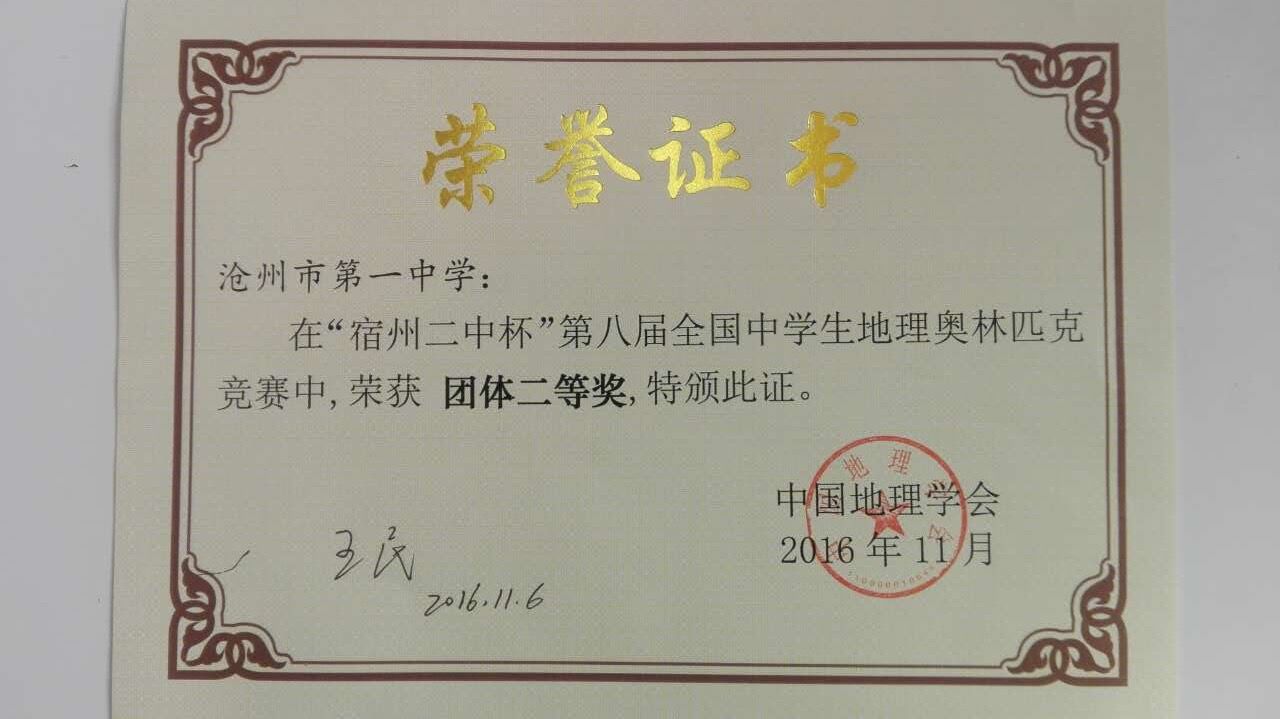 荣誉证书
沧州市第一中学：
在“宿州二中杯”第八届全国中学生地理奥林匹克
竞赛中,荣获 团体二等奖,特颁此证。
中国地理学会
2016年11月
王民
2016.11.6
中国地理学会